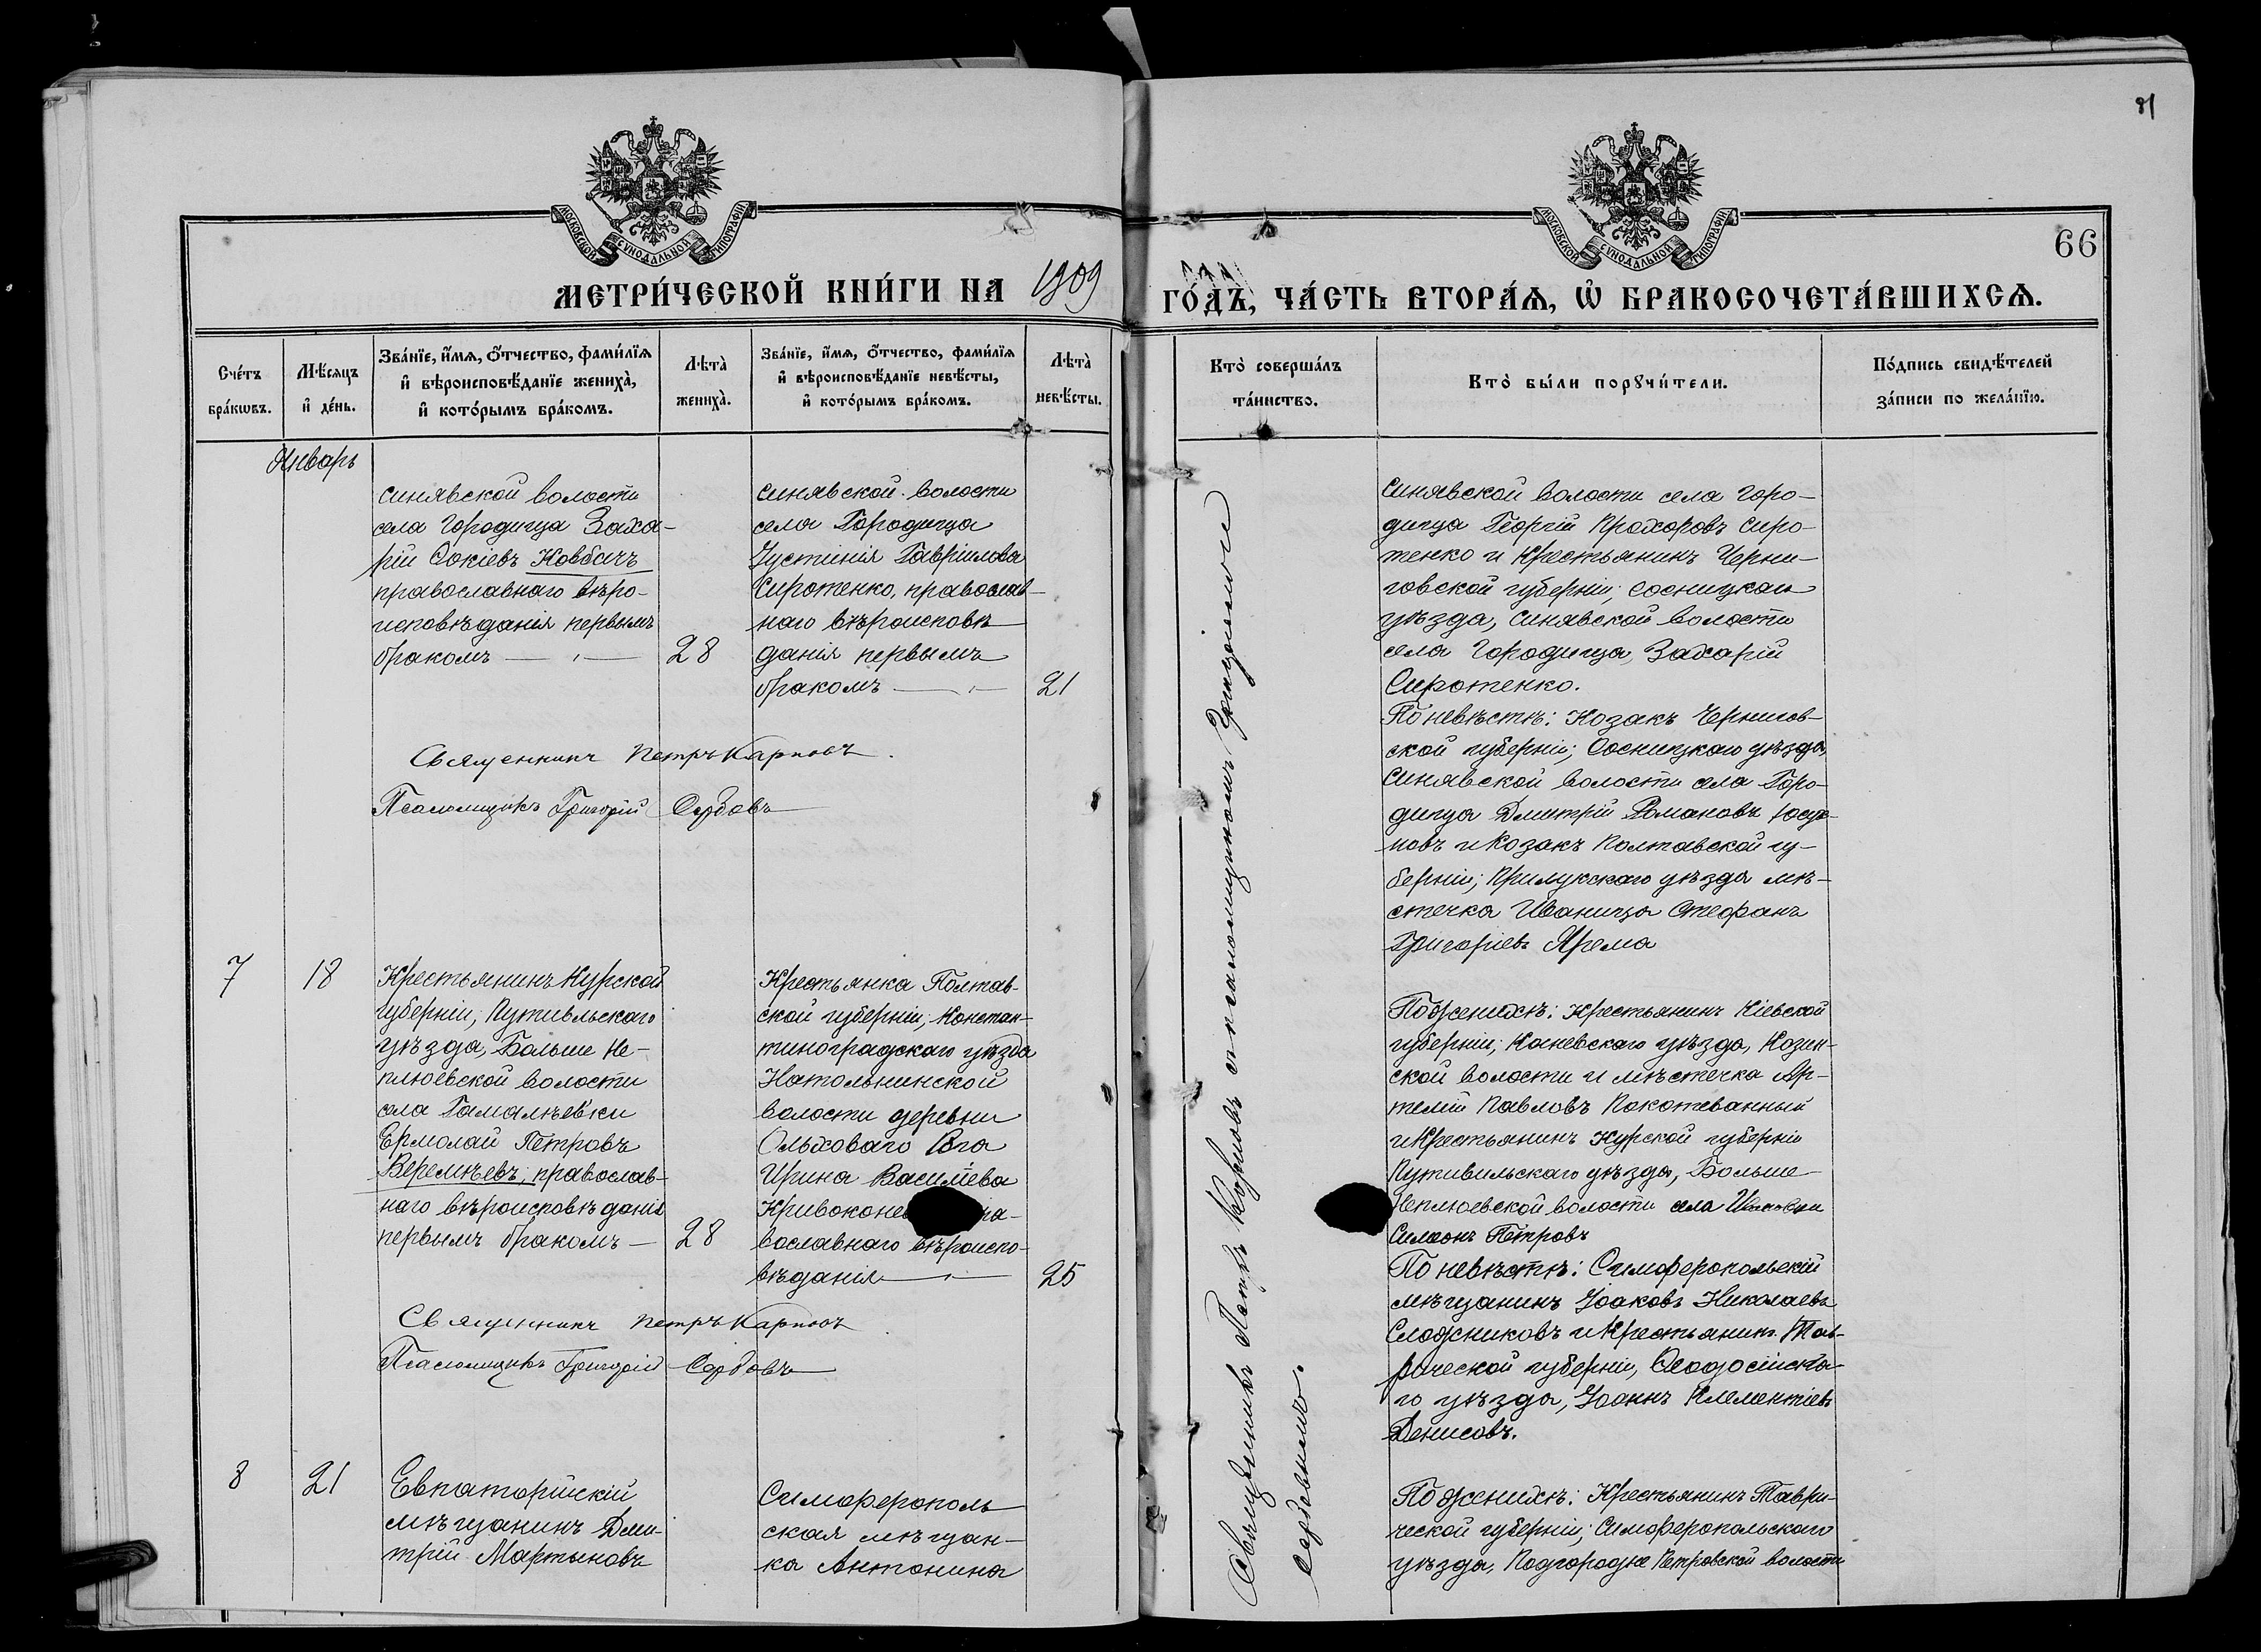 81
МОСКОВСКОЙ СѴНОДАЛЬНОЙ ТИПОГРАФІИ
МОСКОВСКОЙ СѴНОДАЛЬНОЙ ТИПОГРАФІИ
66
МЕТРИ́ЧЕСКОЙ КНИ́ГИ НА 1909 ГО́ДЪ, ЧА́СТЬ ВТОРА́Ѧ, Ѡ҆ БРАКОСОЧЕТА́ВШИХСѦ.
Сче́тъ
бра́кѡвъ.
Мѣ́сяцъ
и҆ де́нь.
Зва́нїе, и҆́мѧ, ѻ҆́тчество, фами́лїѧ
и҆ вѣроисповѣ́данїе жениха̀,
и҆ кото́рымъ бра́комъ.
Лѣта̀
жениха̀.
Зва́нїе, и҆́мѧ, ѻ҆́тчество, фами́лїѧ
и҆ вѣроисповѣ́данїе невѣ́сты,
и҆ кото́рымъ бра́комъ.
Лѣта̀
невѣ́сты.
Кто̀ соверша́лъ
та́инство.
Кто̀ бы́ли порꙋчи́тели.
По́дпись свидѣ́телей
за́писи по жела́нїю.
Январь
синявской волости
села Городища Заха-
рій Сокіевъ Ковбачъ
православнаго вѣро-
исповѣданія первымъ
бракомъ — " —
28
синявской волости
села Городища
Іустинія Гавріилова
Сиротенко, православ-
наго вѣроисповѣ
данія первымъ
бракомъ — " —
21
Священникъ Петръ Карповъ.
Псаломщикъ Григорій Сербовъ
Синявской волости села Горо-
дища Георгій Прохоровъ Сиро-
тенко и Крестьянинъ Черни-
говской губерніи, Сосницкаго
уѣзда, Синявской волости
села Городища, Захарій
Сиротенко.
По невѣстѣ: Козакъ Чернигов-
ской губерніи; Сосницкаго уѣзда,
Синявской волости села Горо-
дища Дмитрій Романовъ
новъ и Козакъ Полтавской гу-
берніи; Прилукскаго уѣзда мѣ-
стечка Иваница Стефанъ
Григоріевъ Ярема
7
18
Крестьянинъ Курской
губерніи, Путивльскаго
уѣзда, Больше Не-
плюевской волости
села Гамалѣевки
Ермолай Петровъ
Веремѣевъ, православ-
наго вѣроисповѣданія
первымъ бракомъ —
28
Крестьянка Полтав-
ской губерніи, Констан-
тиноградскаго уѣзда
Натальинской
волости деревни
Ольховаго Рога
Ирина Василіева
вославнаго вѣроиспо-
вѣданія — " —
25
Священникъ Петръ Карповъ
Псаломщикъ Григорій Сербовъ
По женихѣ: Крестьянинъ Кіевской
губерніи; Каневскаго уѣзда, Козин-
ской волости и мѣстечка Ар-
темій Павловъ Покотеванный
и Крестьянинъ Курской губерніи
Путивильскаго уѣзда, Больше-
Неплюевской волости села
Симеонъ Петровъ
По невѣстѣ: Симферопольскій
мѣщанинъ Іоаковъ Николаевъ
Сложениковъ и Крестьянинъ Тав-
рической губерніи, Ѳеодосійска-
го уѣзда, Іоаннъ Клементіевъ
Денисовъ.
8
21
Евпаторійскій
мѣщанинъ Дми-
трій Мартыновъ
Симферополь
ская мѣщан-
ка Антонина
По женихѣ: Крестьянинъ Таври-
ческой губерніи; Симферопольскаго
уѣзда, Подгородне Петровской волости
Священникъ Петръ Карповъ съ псаломщикомъ Григоріемъ
Сербовымъ.